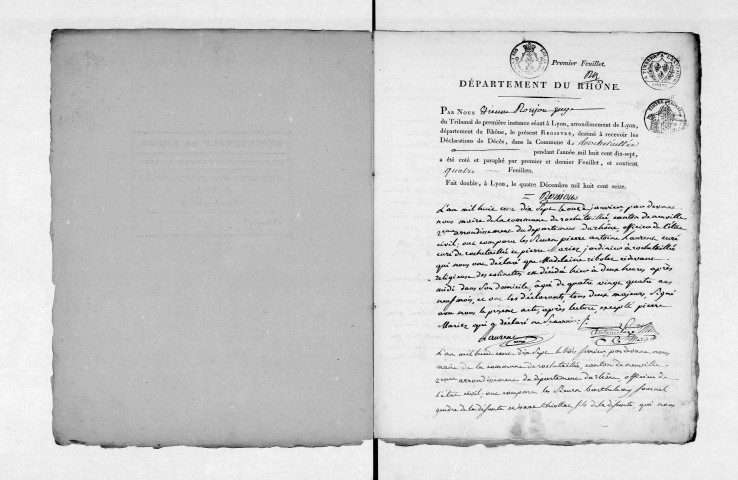 Premier Feuillet.
DÉPARTEMENT DU RHÔNE.
PAR NOUS Etienne juge
du Tribunal de première instance séant à Lyon, arrondissement de Lyon,
département du Rhône, le présent REGISTRE, destiné à recevoir les
Déclarations de Décès, dans la Commune de Rochetaillée
pendant l'année mil huit cent dix-sept,
a été coté et paraphé par premier et dernier Feuillet, et contient
quatre Feuillets.
Fait double, à Lyon, le quatre Décembre mil huit cent seize.
L'an mil huit cent dix sept le onze janvier par devant
nous maire de la commune de rochetaillée, canton de neuville
2eme arrondissement du département du rhône, officier de l'état
civil; ont comparu les sieurs pierre antoine Laurent curé
curé de rochetaillée et pierre Mariez jardinier à rochetaillée
qui nous ont déclaré que Madelaine ribolet cidevant
religieuse des colinettes est décédé hier à deux heures après
midi dans son domicile, âgée de quatre vingt quatre ans
neuf mois, et ont les déclarants, tous deux majeurs, signé
avec nous le présent acte, après lecture, excepté pierre
Mariez qui a déclaré ne savoir
Laurent curé
L'an mil huit cent dix sept le trois fevrier par devant nous
maire de la commune de rochetaillée, canton de neuville
2eme arrondissement du département du rhône, officier de
l'état civil, ont comparu les sieurs barthelemy fournel
gendre de la défunte et thiollet fils de la défunte, qui nous